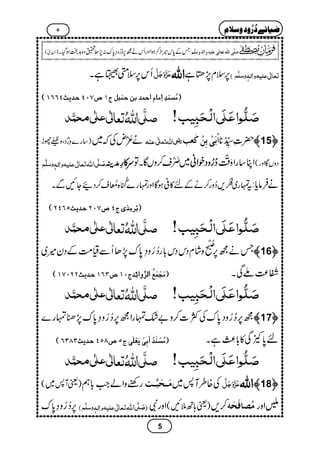 ضیائے دُرُود و سلام
۵
فرمانِ مصطفےٰ صلی اللہ تعالیٰ علیہ واٰلہ وسلم
تعالیٰ علیہ واٰلہ وسلم) پر سلام پڑھتا ہے اللہ عَزَّوَجَلَّ اُس پر سلامتی بھیجتا ہے۔
(مُسنَدِ اِمام احمد بن حنبل ج۱ ص۴۰۷ حدیث۱۶۶۴)
صَلُّوا عَلَی الْحَبِیب ! صلَّی اللہُ تعالیٰ علیٰ محمَّد
﴿15﴾ حضرتِ سیِّدُنا اُبَیِّ بْنِ کَعْب رضی اللہ تعالیٰ عنہ نے عَرْض کی کہ میں (سارے وِرد، وظیفے چھوڑ
دوں گا اور) اپنا سارا وَقْت دُرُود خوانی میں صَرْف کروں گا۔ تو سرکارِ مدینہ صَلَّی اللہُ تعالیٰ علیہ واٰلہٖ وسلَّم
نے فرمایا: یہ تمہاری فکریں دُور کرنے کے لئے کافی ہوگا اور تمہارے گناہ مُعاف کر دیئے جائیں گے۔
(تِرمِذی ج۴ ص۲۰۷ حدیث۲۴۶۵)
صَلُّوا عَلَی الْحَبِیب ! صلَّی اللہُ تعالیٰ علیٰ محمَّد
﴿16﴾ جس نے مجھ پر صبح و شام دس دس بار دُرُود پاک پڑھا اُسے قیامت کے دن میری
شَفاعت ملے گی۔ (مَجْمَعُ الزَّوَائِد ج۱۰ ص۱۶۳ حدیث۱۷۰۲۲)
صَلُّوا عَلَی الْحَبِیب ! صلَّی اللہُ تعالیٰ علیٰ محمَّد
﴿17﴾ مجھ پر دُرُود پاک کی کثرت کرو بے شک تمہارا مجھ پر دُرُود پاک پڑھنا تمہارے
لئے پاکیزگی کا باعث ہے۔ (مُسْنَدُ اَبِیْ یَعْلٰی ج۵ ص۴۵۸ حدیث۶۳۸۳)
صَلُّوا عَلَی الْحَبِیب ! صلَّی اللہُ تعالیٰ علیٰ محمَّد
﴿18﴾ اللہ عَزَّوَجَلَّ کی خاطر آپس میں مَحَبَّت رکھنے والے جب باہم (یعنی آپس میں)
ملیں اور مُصافَحَہ کریں (یعنی ہاتھ ملائیں) اور نبی (صَلَّی اللہُ تعالیٰ علیہ واٰلہٖ وسلَّم) پر دُرُود پاک
5